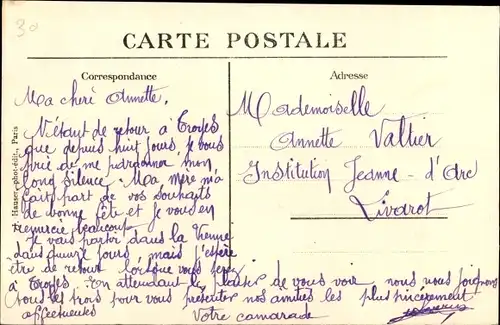 30
CARTE POSTALE
Correspondance
Adresse
Ma cheré Annette,
N'étant de retour à Troyes
que depuis huit jours, je vous
prie de me pardonner mon
long silence. Ma mère m'a
fait part de vos souhaits
de bonne fête et je vous en
remercie beaucoup.
Je vais partir dans la Vienne
dans quinze jours, mais j'espère
être de retour lorsque vous serez
à Troyes. En attendant le plaisir de vous voir nous nous joignons
tous les trois pour vous présenter nos amitiés les plus sincèrement
affectueuses
Votre camarade
Mademoiselle
Annette Valtier
Institution Jeanne-d'Arc
Livarot
Hauser, phot-édit., Paris